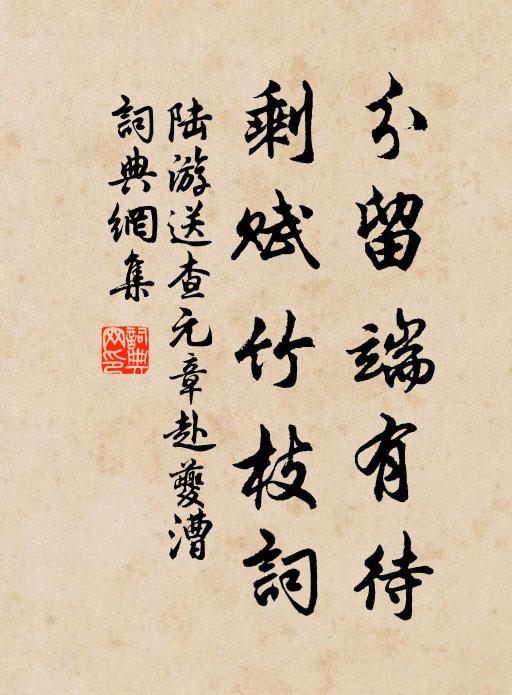 分留端有待
剩赋竹枝詞
陆游送查元章赴夔漕
詞典網集
詞典網印